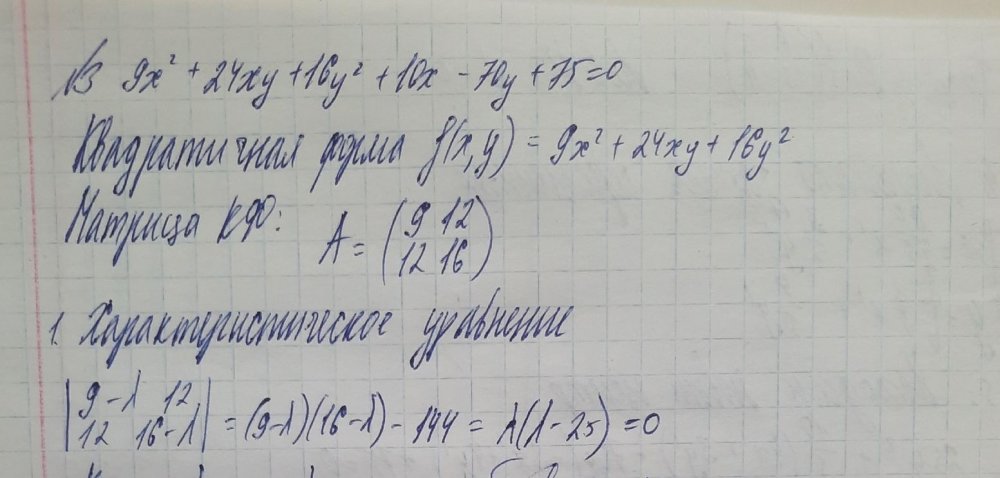 №3 9x² + 24xy + 16y² + 10x - 70y + 75 = 0
Квадратичная форма f(x,y) = 9x² + 24xy + 16y²
Матрица КФ: A = (9 12
12 16)
1. Характеристическое уравнение
|9-λ 12
12 16-λ| = (9-λ)(16-λ) - 144 = λ(λ-25) = 0